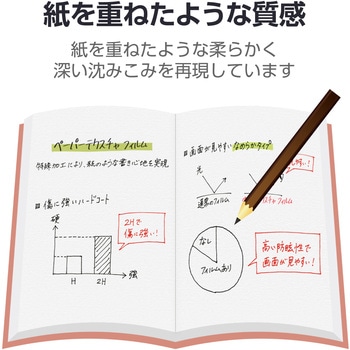 紙を重ねたような質感
紙を重ねたような柔らかく
深い沈みこみを再現しています
ペーパーテクスチャフィルム
特殊加工により、紙のような書き心地を実現
傷に強いハードコート
硬
2Hで
傷に強い!
H
2H
強
画面が見やすいなめらかタイプ
光
通常のフィルム
フィルム
なし
フィルムあり
高い防眩性で
画面が見やすい!